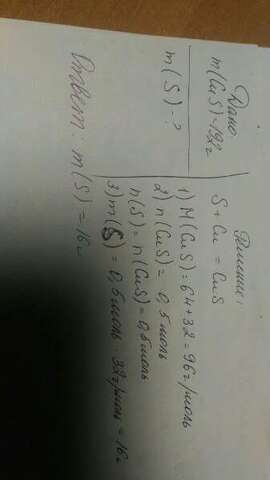 Дано
m(CuS)-192г
m(S)-?
Решение:
S+Cu = CuS
1) M(CuS)=64+32=96г/моль
2) n(CuS)= 0,5моль
n(S)=n(CuS)=0,5моль
3) m(S)=0,5моль·32г/моль=16г
Ответ: m(S)=16г